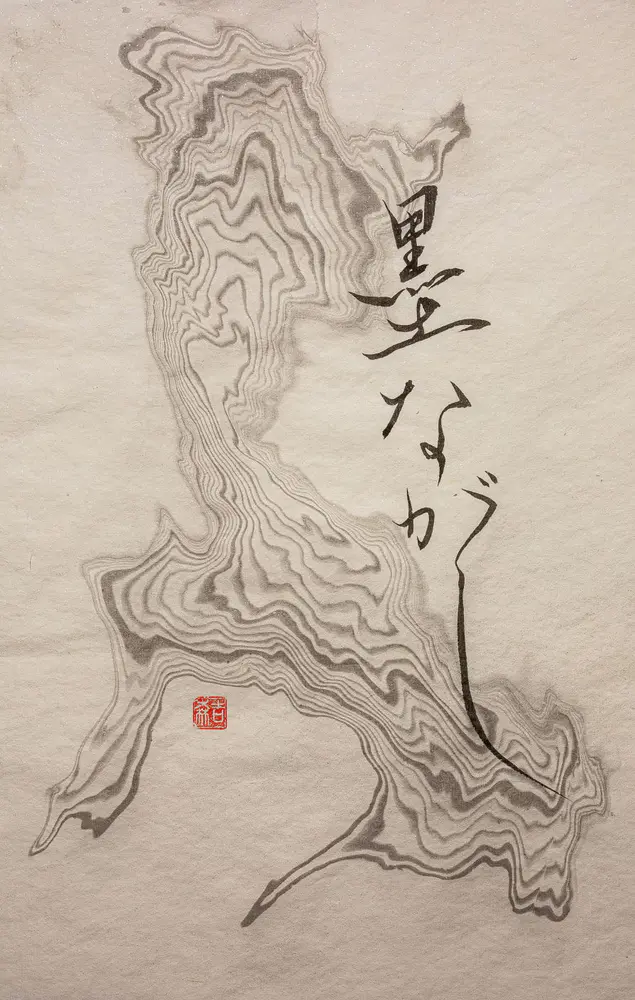 墨ながし